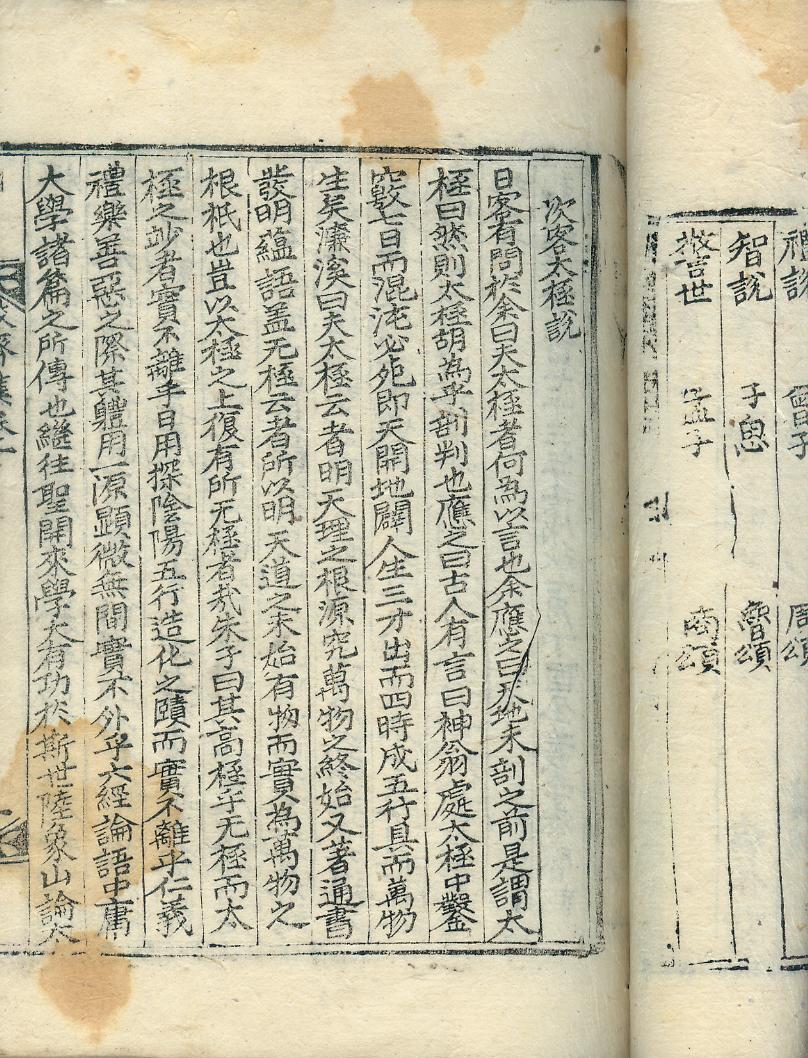 禮說 曾子 周頌
智說 子思 魯頌
警世 孟子 商頌
次客太極說
日客有問於余曰夫太極者何為以言也余應之曰天地未剖之前是謂太
極曰然則太極胡為乎剖判也應之曰古人有言曰神翁處太極中鑿
竅七日而混沌必死即天開地闢人生三才出而四時成五行具而萬物
生矣濂溪曰夫太極云者明天理之根源究萬物之終始又著通書
發明蘊語盖无極云者所以明天道之未始有物而實為萬物之
根柢也豈以太極之上復有所无極者㢤朱子曰其高極乎无極而太
極之妙者實不離乎日用探陰陽五行造化之賾而實不離乎仁義
禮樂善惡之際其軆用一源顯微無間實不外乎六經論語中庸
大學諸篇之所傳也繼往聖開來學大有功於斯世陸象山論太